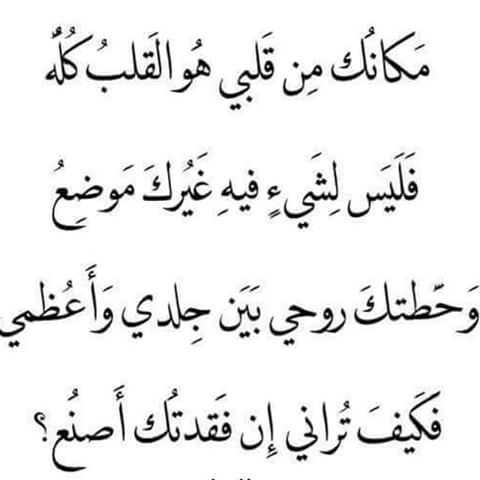 مَكانُك مِن قَلبي هُو القَلبُ كُلُّهُ
فَلَيَس لِشَيءٍ فيهِ غَيُركَ مَوضِعُ
وَحّطتكَ روحي بَيَن جِلدي وَأَعُظمي
فَكَيفَ تُراني إِن فَقدتُك أَصنُع؟